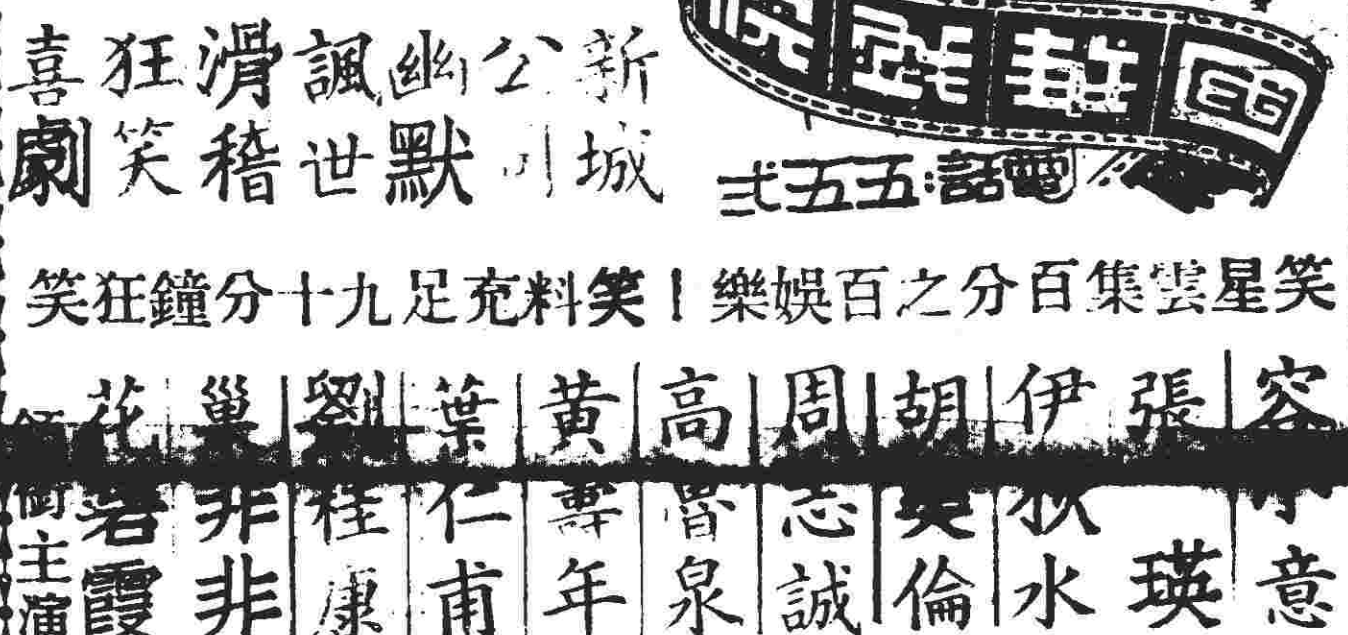 國
戲院
電話:五五弍
新城
公
幽默
諷世
滑稽
狂笑
喜劇
笑星雲集百分之百娛樂！笑料充足九十分鐘狂笑
容小意
張瑛
伊秋水
胡美倫
周志誠
高魯泉
黃壽年
葉仁甫
劉桂康
巢非非
花霞
領銜主演